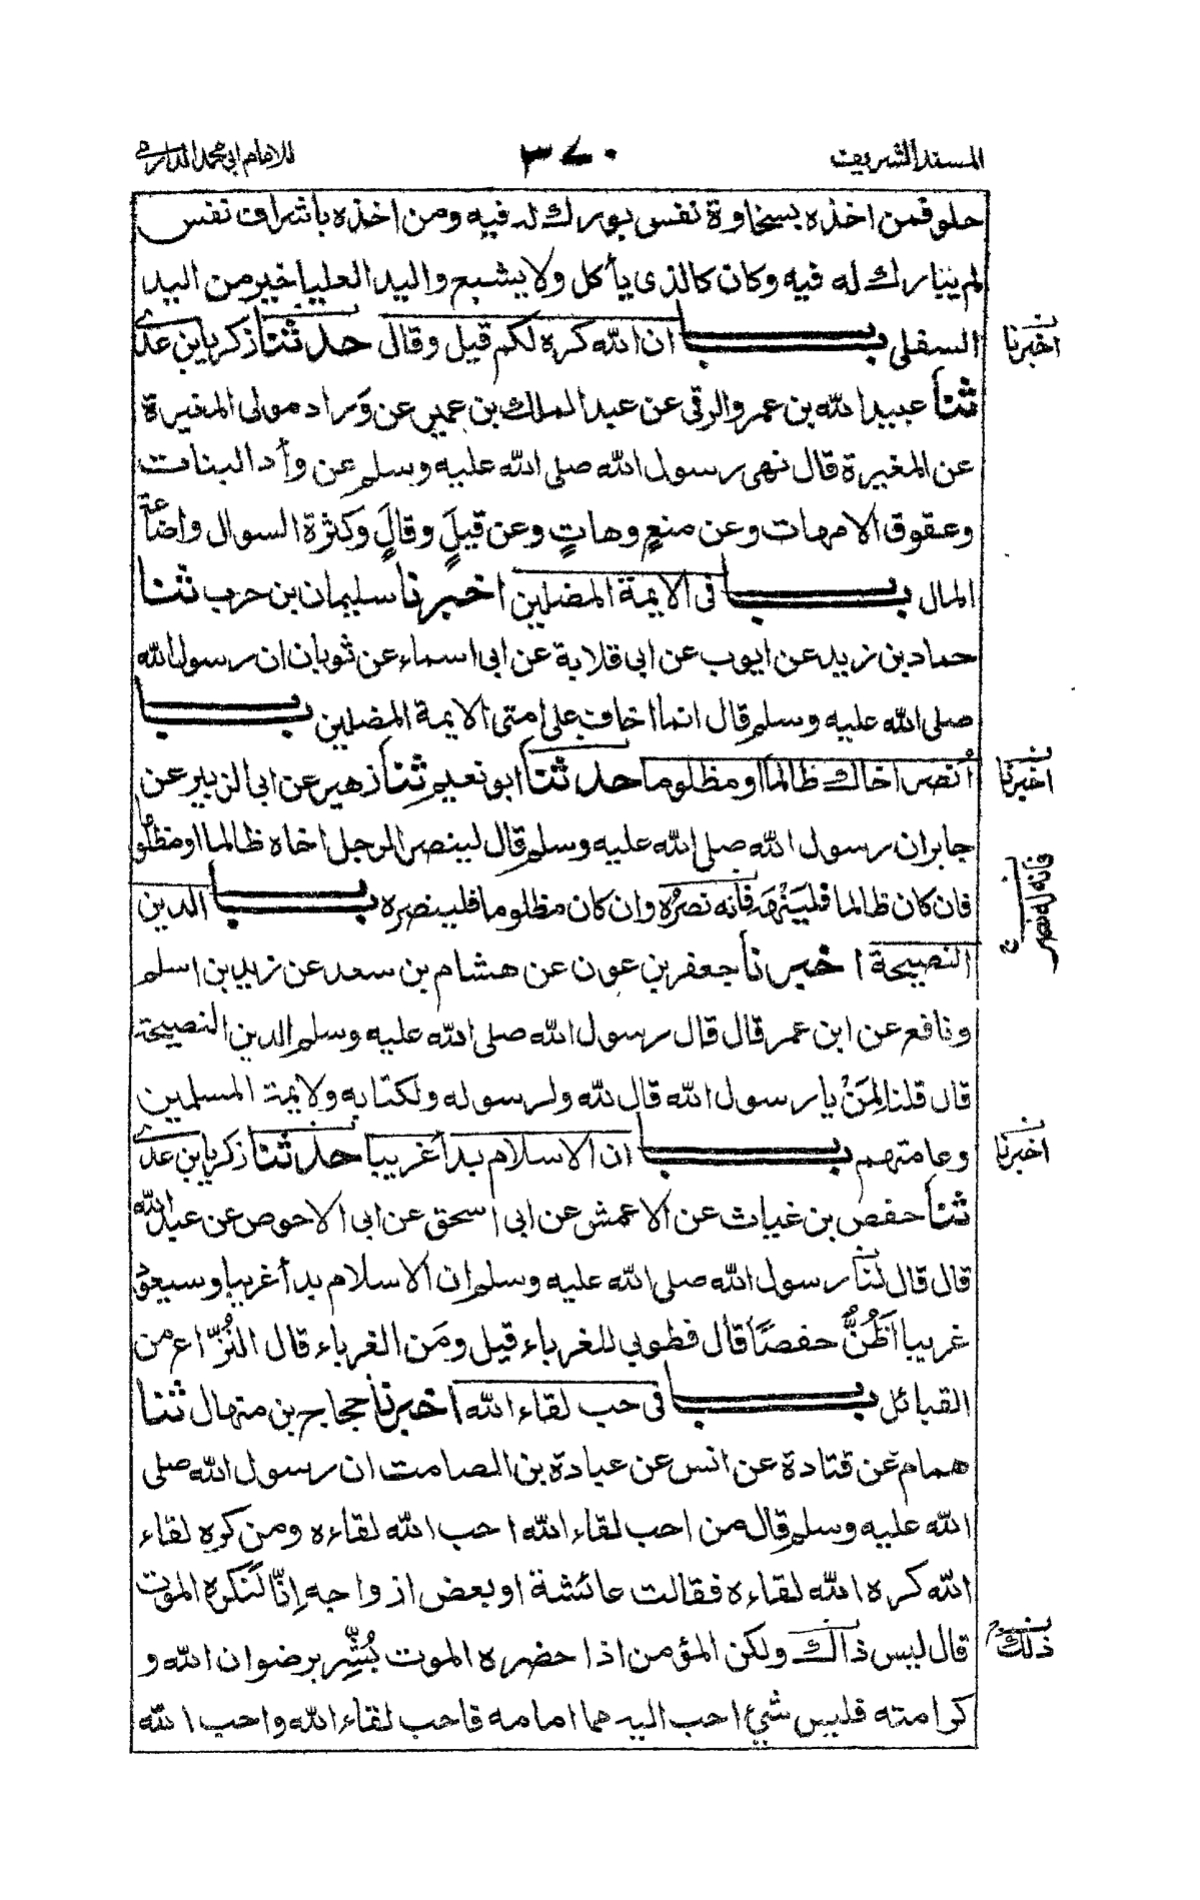 المسند الشريف ٣٧٠ للامام ابى محمد الدارمى
حلو فمن اخذه بسخاوة نفس بورك له فيه ومن اخذه باشراف نفس
لم يبارك له فيه وكان كالذى يأكل ولا يشبع واليد العليا خير من اليد
السفلى بـــاب ان الله كره لكم قيل وقال حدثنا زكريا بن عدى
اخبرنا
ثنا عبيد الله بن عمرو الرقى عن عبد الملك بن عمير عن وَراد مولى المغيرة
عن المغيرة قال نهى رسول الله صلى الله عليه وسلم عن وأد البنات
وعقوق الامهات وعن منعٍ وهاتٍ وعن قيلَ وقالٍ وكثرة السوال واضاعة
المال بـــاب فى الايمة المضلين اخبرنا سليمان بن حرب ثنا
حماد بن زيد عن ايوب عن ابى قلابة عن ابى اسماء عن ثوبان ان رسول الله
صلى الله عليه وسلم قال انما اخاف على امتى الايمة المضلين بـــاب
أنصر اخاك ظالما او مظلوما حدثنا ابو نعيم ثنا زهير عن ابى الزبير عن
اخبرنا
جابر ان رسول الله صلى الله عليه وسلم قال لينصر الرجل اخاه ظالما او مظلوما
فان كان ظالما فليَنْهَه فانه نصرُه وان كان مظلوما فلينصره بـــاب الدين
فانه له نصر
النصيحة اخبرنا جعفر بن عون عن هشام بن سعد عن زيد بن اسلم
ونافع عن ابن عمر قال قال رسول الله صلى الله عليه وسلم الدين النصيحة
قال قلنا لِمَنْ يا رسول الله قال لله ولرسوله ولكتابه ولايمة المسلمين
وعامتهم بـــاب ان الاسلام بدأ غريبا حدثنا زكريا بن عدى
اخبرنا
ثنا حفص بن غياث عن الاعمش عن ابى اسحق عن ابى الاحوص عن عبد الله
قال قال لنا رسول الله صلى الله عليه وسلم ان الاسلام بدأ غريبا وسيعود
غريبا اَظُنُّ حفصًا قال فطوبى للغرباء قيل ومَن الغرباء قال النُزّاع من
القبائل بـــاب فى حب لقاء الله اخبرنا حجاج بن منهال ثنا
همام عن قتادة عن انس عن عبادة بن الصامت ان رسول الله صلى
الله عليه وسلم قال من احب لقاء الله احب الله لقاءه ومن كره لقاء
الله كره الله لقاءه فقالت عائشة او بعض ازواجه اِنّا لَنكره الموت
قال ليس ذاك ولكن المؤمن اذا حضره الموت بُشِّر برضوان الله و
ذلك
كرامته فليس شئ احب اليه مما امامه فاحب لقاء الله واحب الله